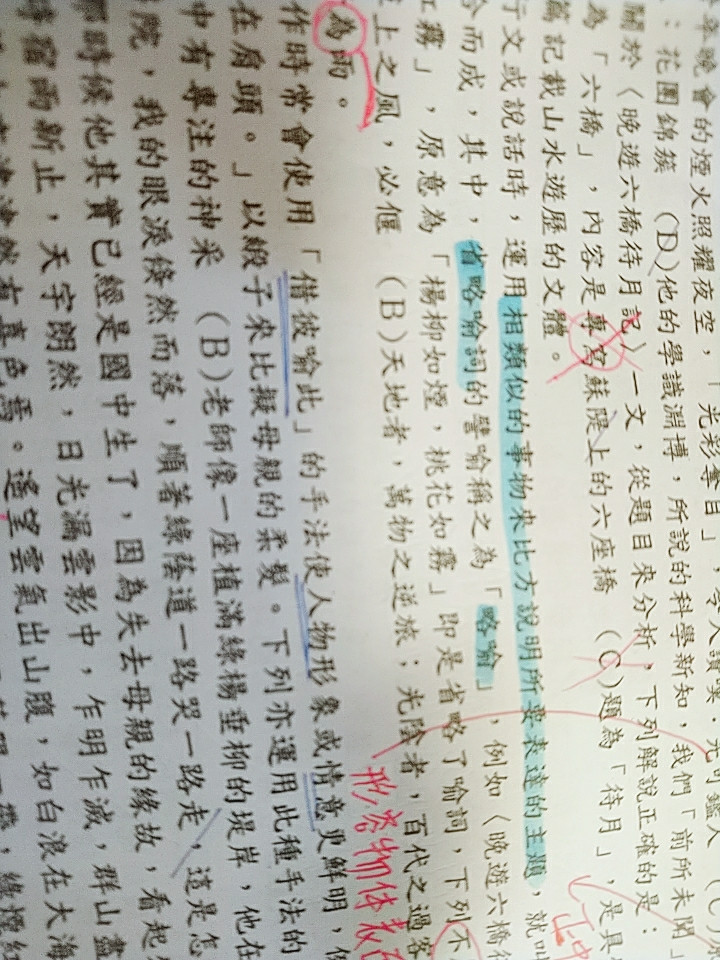 年晚會的煙火照耀夜空，「光彩奪目」，令人讚嘆．光可鑑人 (C)
：花團錦簇 (D)他的學識淵博，所說的科學新知，我們「前所未聞」
關於〈晚遊六橋待月記〉一文，從題目來分析，下列解說正確的是：
為「六橋」，內容是專寫蘇隄上的六座橋 (C)題為「待月」，是具
篇記載山水遊歷的文體。
行文或說話時，運用相類似的事物來比方說明所要表達的主題，就叫
合而成，其中，省略喻詞的譬喻稱之為「略喻」，例如〈晚遊六橋待
紅霧」，原意為「楊柳如煙，桃花如霧」即是省略了喻詞，下列不
上之風，必偃 (B)天地者，萬物之逆旅；光陰者，百代之過客
形容物体表面
為雨。
作時常會使用「借彼喻此」的手法使人物形象或情意更鮮明，例
在肩頭。」以緞子來比擬母親的柔髮。下列亦運用此種手法的
中有專注的神采 (B)老師像一座植滿綠楊垂柳的堤岸，他在
院，我的眼淚倏然而落，順著綠蔭道一路哭一路走，這是怎
那時候他其實已經是國中生了，因為失去母親的緣故，看起
時宿雨新止，天宇朗然，日光漏雲影中，乍明乍滅，群山盡
津津然有喜色焉。遙望雲氣出山腹，如白浪在大海